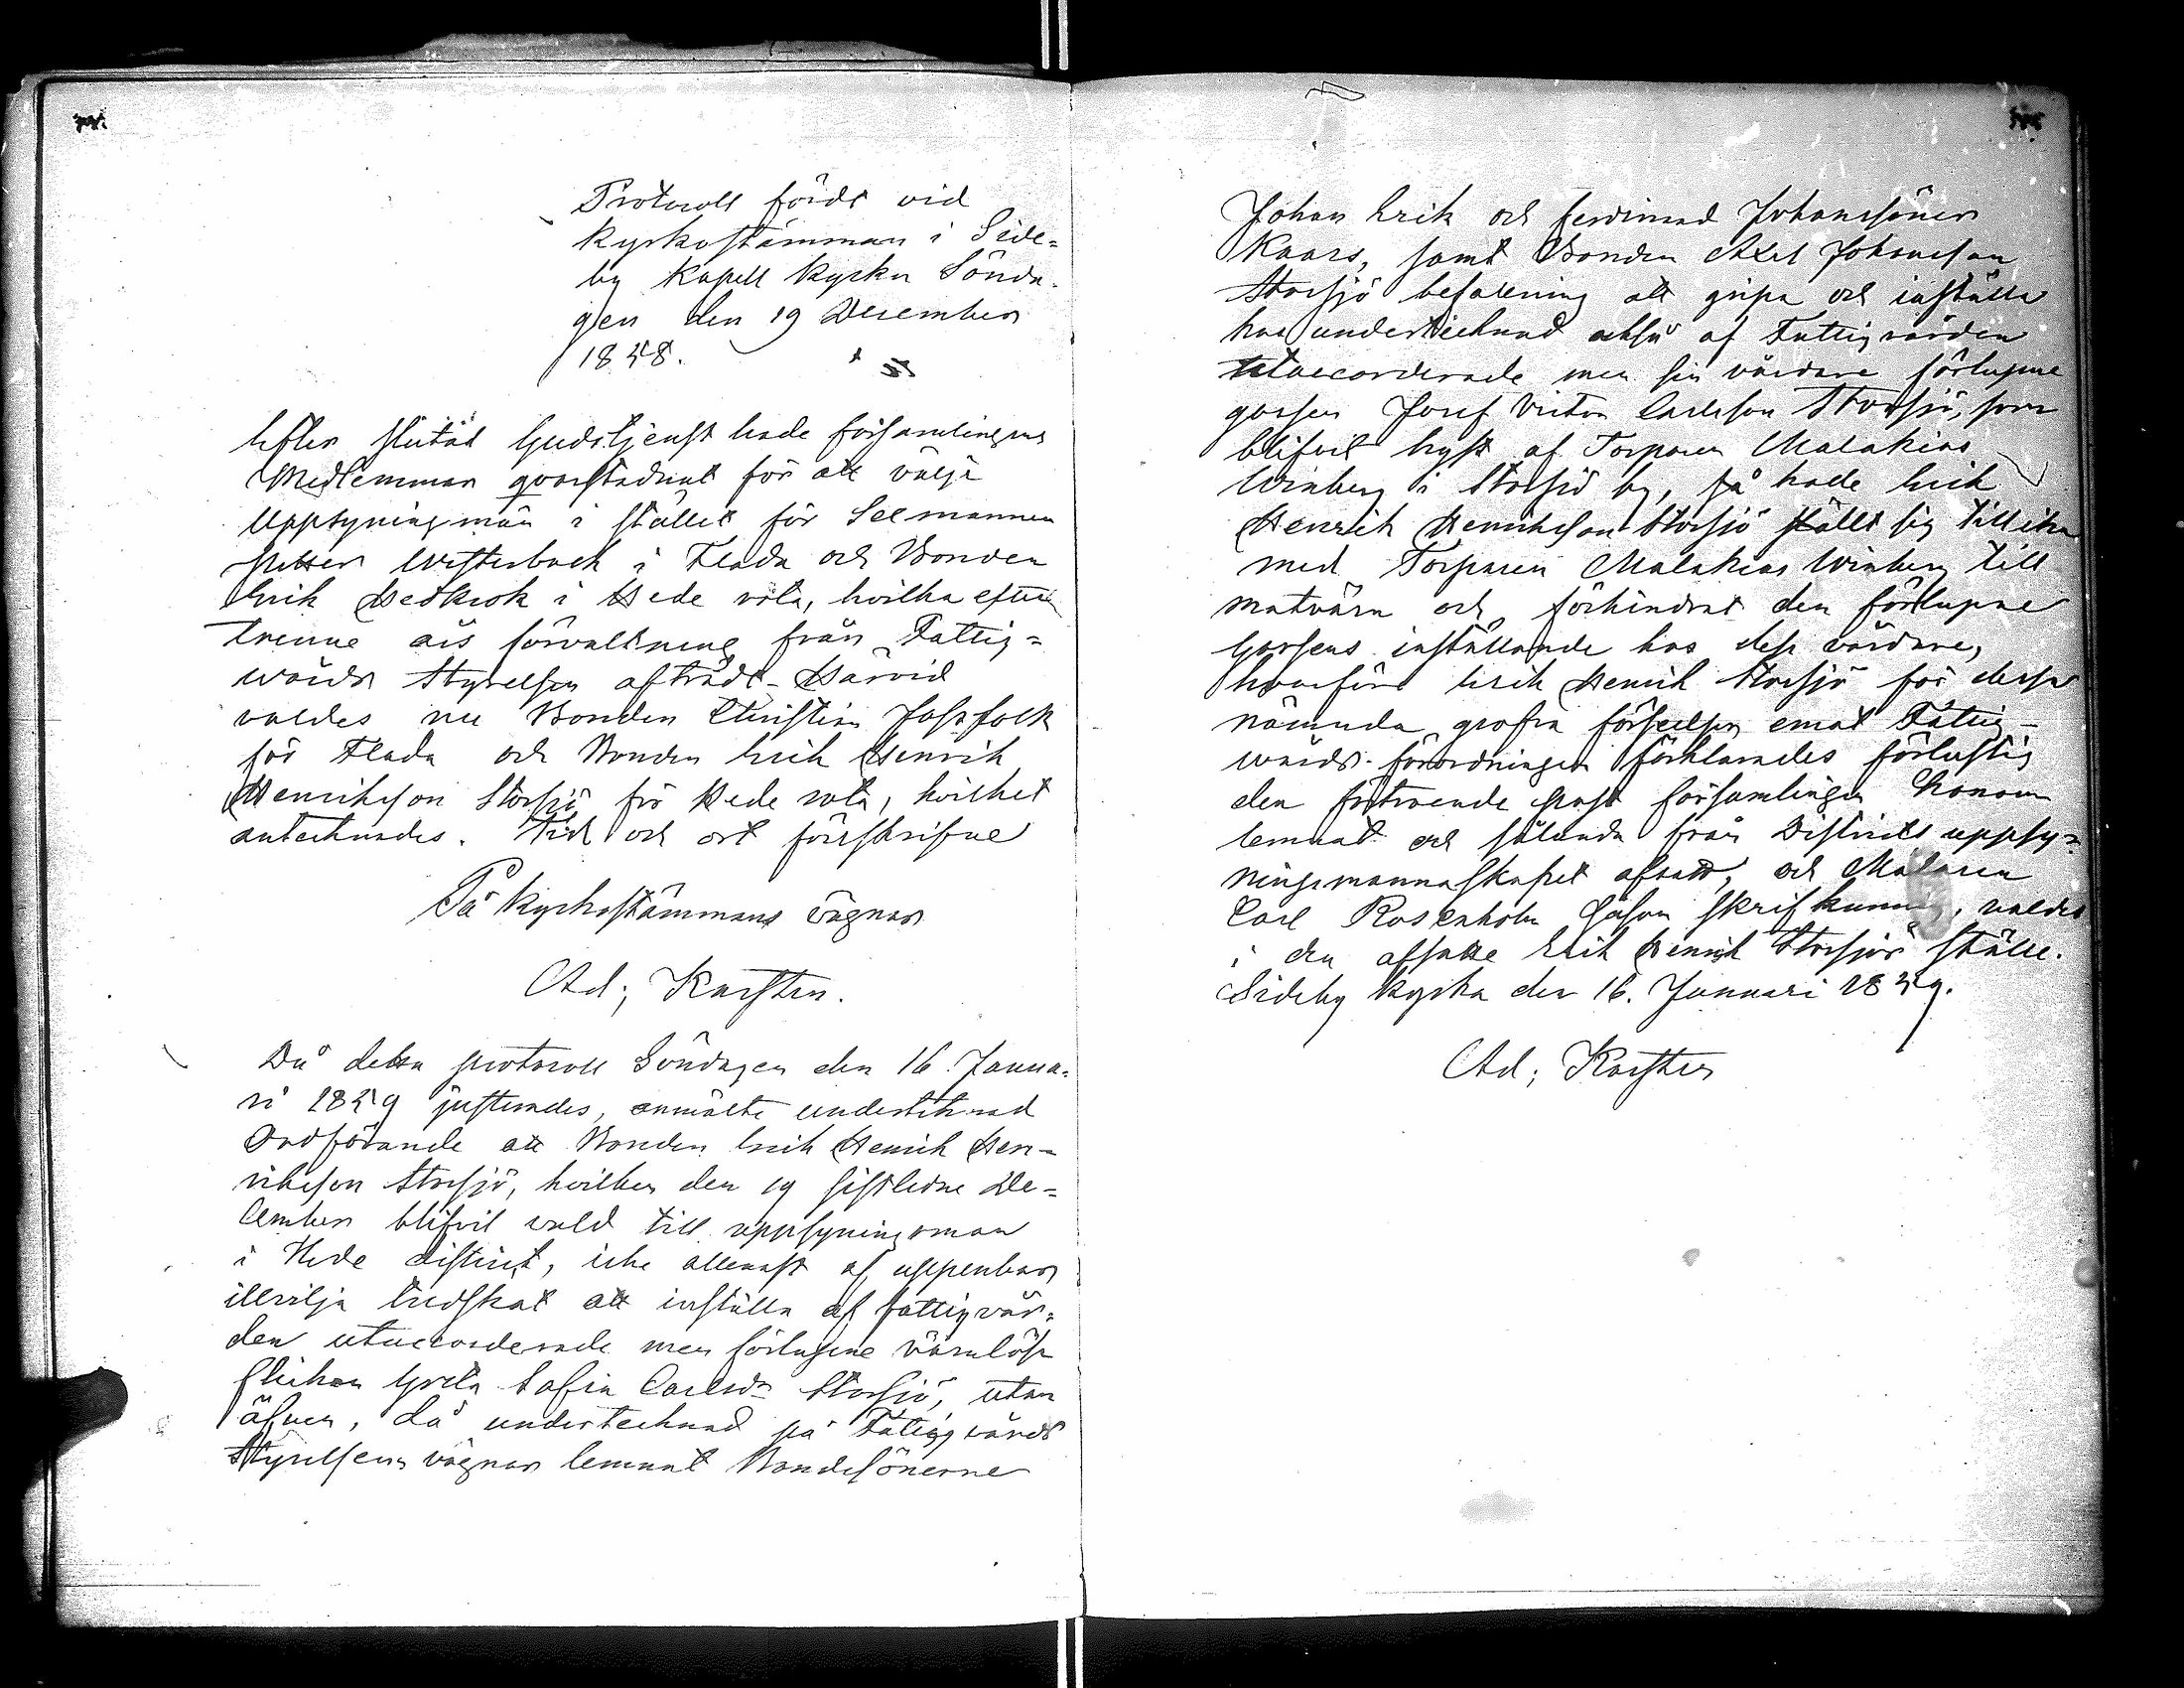 Protocoll fördt vid
kyrkostämman i Side=
by Kapell kyrka Sönda-
gen den 19 December
1858.
Efter slutad Gudstjenst hade församlingens
Medlemmar qvarstadnat för att välja
Uppsyningsmän i stället för Selmannen
Petter Westerback i Flada och Bonden
Erik Hedkrok i Hede rota, hvilka efter
trenne års förvaltning från Fattig=
wårds Styrelsen afträdt. Härvid
valdes nu Bonden Christian Jossfolk
för Flada och Bonden Erik Henrik
Henriksson Storsjö för Hede rota, hvilket
antecknades. Tid och ort förrskrifne
På kyrkostämmans vägnar
Ad; Karsten.
Då detta protocoll Söndagen den 16. Janua=
ri 1859 justerades, anmälte undertecknad
Ordförande att Bonden Erik Henrik Hen=
riksson Storsjö, hvilken den 19 sistledne De=
cember blifvit vald till uppsyningsman
i Hede district, icke allenast af uppenbar
illvilja tredskat att inställa af fattigvår=
den utaccorderade men förlupne värnlösa
flickan Greta Sofia Carlsdr Storsjö, utan
äfven, då undertecknad på Fattigvårds
Styrelsens vägnar lemnat Bondesönerne
Johan Erik och Ferdinand Johanssöner
Kaars, samt Bonden Axel Johansson
Storsjö befallning att gripa och inställa
hos undertecknad också af Fattigvården
utaccorderade men sin vårdare förlupne
gossen Josef Victor Carlsson Storsjö, som
blifvit hyst af Torparen Malakias
Winberg i Storsjö by, så hade Erik
Henrik Henriksson Storsjö ställt sig tillika
med Torparen Malakias Winberg till
motvärn och förhindrat den förlupne
Gossens inställande hos dess vårdare,
hvarföre Erik Henrik Storsjö för dessa
nämnda grofva förseelser emot Fattig-
wårds-förordningen förklarades förlustig
den förtroende post församlingen honom
lemnat och sålunda från Districts uppsy=
ningsmannaskapet afsatt, och Målaren
Carl Rosenholm såsom skrifkunnig, valdes
i den afsatte Erik Henrik Storsjös ställe.
Sideby kyrka den 16. Januari 1859.
Ad; Karsten